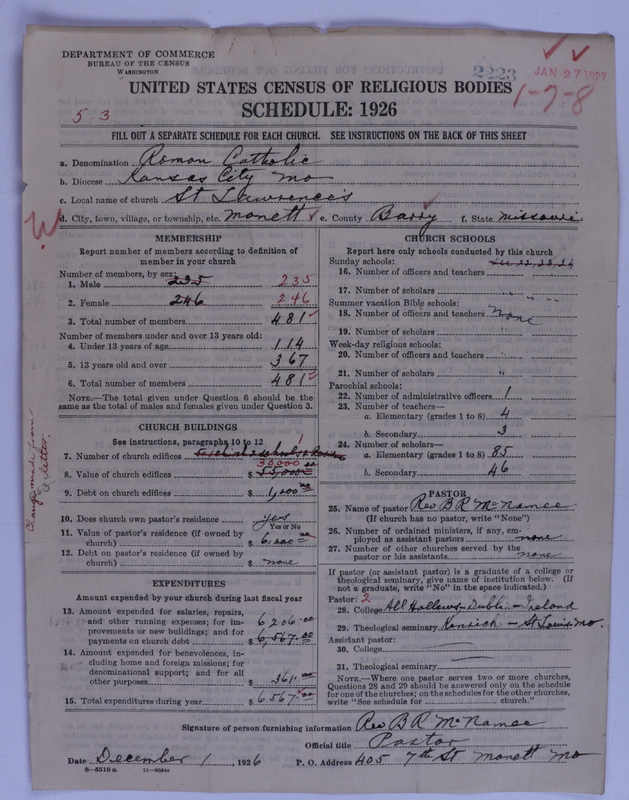 DEPARTMENT OF COMMERCE
BUREAU OF THE CENSUS
WASHINGTON
2223
JAN 27 1927
UNITED STATES CENSUS OF RELIGIOUS BODIES
1-7-8
SCHEDULE: 1926
53
FILL OUT A SEPARATE SCHEDULE FOR EACH CHURCH. SEE INSTRUCTIONS ON THE BACK OF THIS SHEET
a. Denomination Roman Catholic
b. Diocese Kansas City Mo
c. Local name of church St Lawrence's
d. City, town, village, or township, etc. Monett e. County Barry f. State Missouri
MEMBERSHIP
Report number of members according to definition of
member in your church
Number of members, by sex:
1. Male 235 235
2. Female 246 246
3. Total number of members 481
Number of members under and over 13 years old:
4. Under 13 years of age 114
5. 13 years old and over 367
6. Total number of members 481
NOTE.—The total given under Question 6 should be the
same as the total of males and females given under Question 3.
CHURCH BUILDINGS
See instructions, paragraphs 10 to 12
7. Number of church edifices 1
30,000 00
8. Value of church edifices $
9. Debt on church edifices $ 1,000 00
10. Does church own pastor's residence yes
Yes or No
11. Value of pastor's residence (if owned by
church) $ 6,000 00
12. Debt on pastor's residence (if owned by
church) $ none
Change made from
letter.
EXPENDITURES
Amount expended by your church during last fiscal year
13. Amount expended for salaries, repairs,
and other running expenses; for im- 6206.00
provements or new buildings; and for
payments on church debt $ 6,567.00
14. Amount expended for benevolences, in-
cluding home and foreign missions; for
denominational support; and for all
other purposes $ 361.00
15. Total expenditures during year $ 6567.00
CHURCH SCHOOLS
Report here only schools conducted by this church
Sunday schools: See 22, 23, 24
16. Number of officers and teachers
17. Number of scholars
Summer vacation Bible schools:
18. Number of officers and teachers None
19. Number of scholars "
Week-day religious schools:
20. Number of officers and teachers "
21. Number of scholars "
Parochial schools:
22. Number of administrative officers 1
23. Number of teachers—
a. Elementary (grades 1 to 8) 4
b. Secondary 3
24. Number of scholars—
a. Elementary (grades 1 to 8) 85
b. Secondary 46
PASTOR
25. Name of pastor Rev B R McNamee
(If church has no pastor, write "None")
26. Number of ordained ministers, if any, em-
ployed as assistant pastors none
27. Number of other churches served by the
pastor or his assistants none
If pastor (or assistant pastor) is a graduate of a college or
theological seminary, give name of institution below. (If
not a graduate, write "No" in the space indicated.)
Pastor: 2
28. College All Hallows - Dublin - Ireland
29. Theological seminary Kenrick - St Louis Mo.
Assistant pastor:
30. College
31. Theological seminary
NOTE.—Where one pastor serves two or more churches,
Questions 28 and 29 should be answered only on the schedule
for one of the churches; on the schedules for the other churches,
write "See schedule for church."
Signature of person furnishing information Rev B R McNamee
Official title Pastor
Date December 1, 1926 P. O. Address 405 7th St Monett Mo